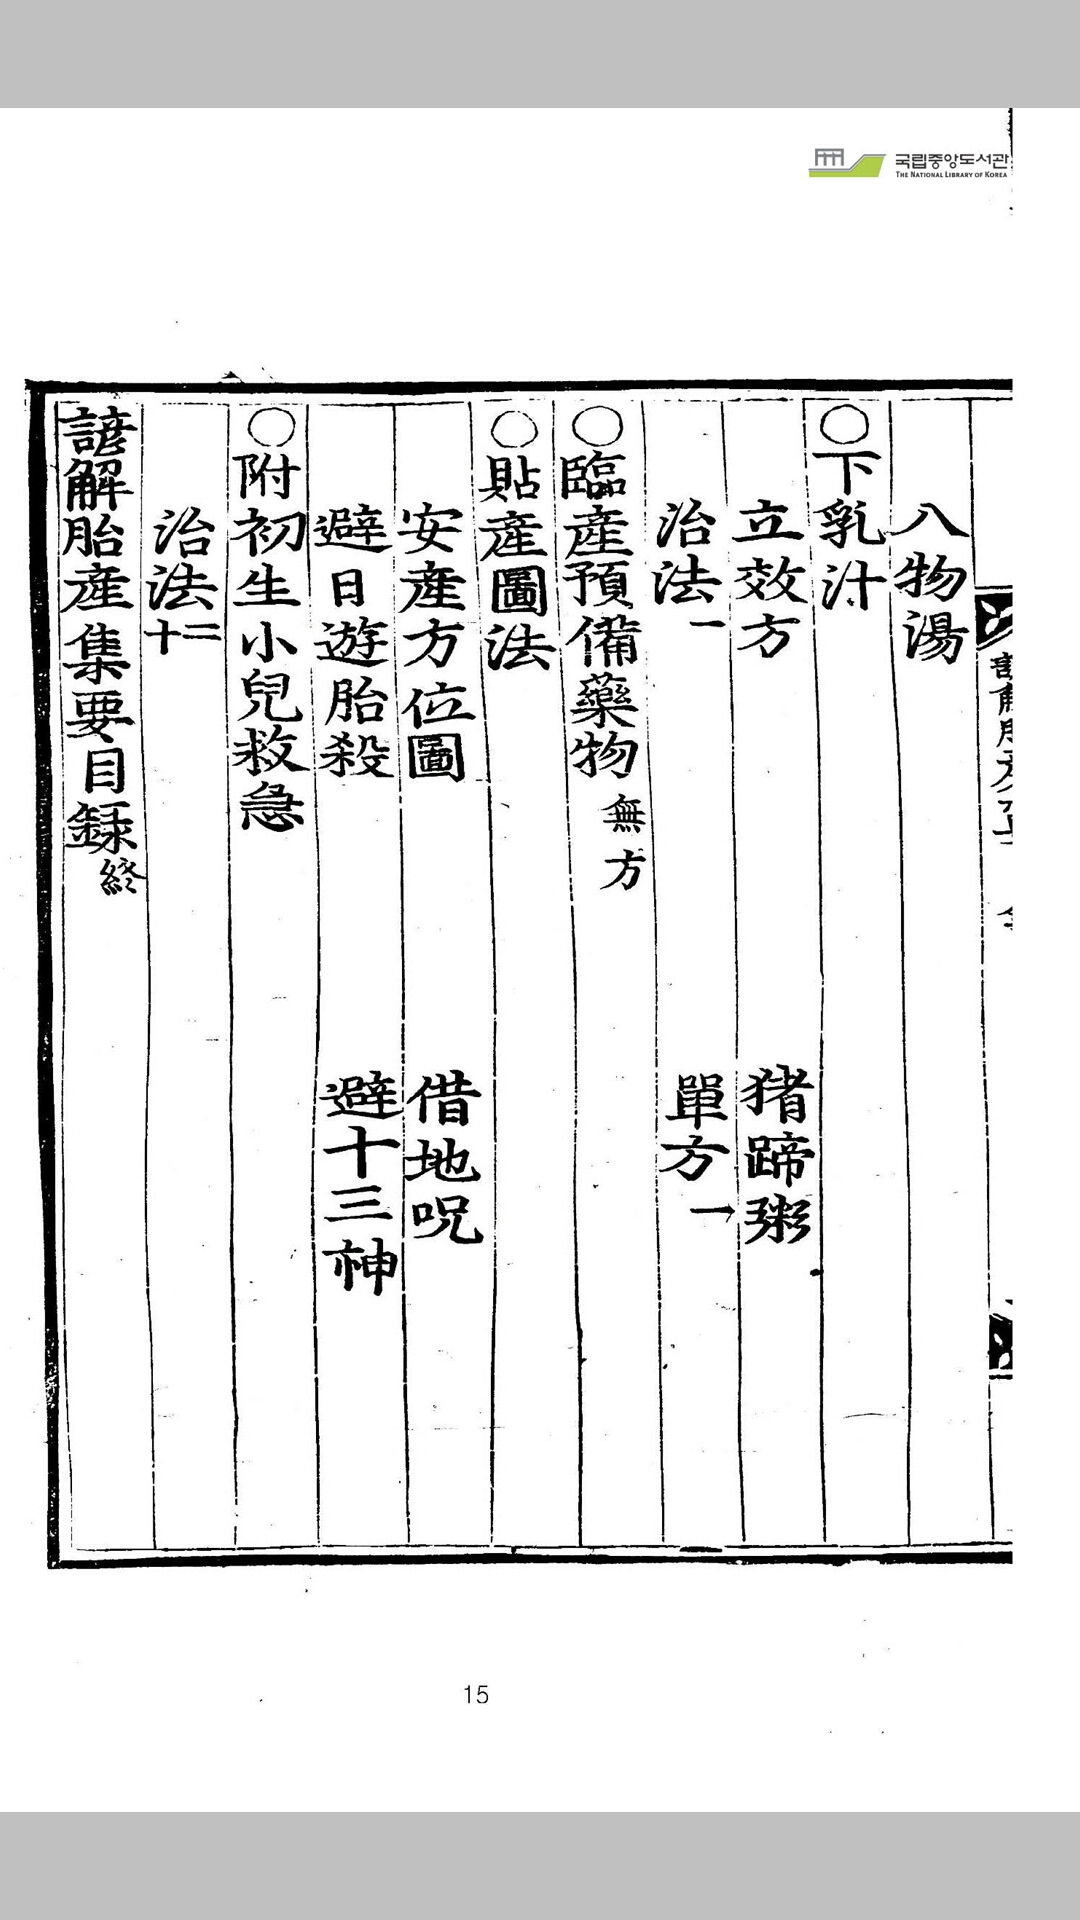 국립중앙도서관
THE NATIONAL LIBRARY OF KOREA
八物湯
○下乳汁
立效方 猪蹄粥
治法一 單方一
○臨産預備藥物 無方
○貼産圖法
安産方位圖 借地呪
避日遊胎殺 避十三神
○附初生小兒救急
治法十二
諺解胎産集要目録 終
15